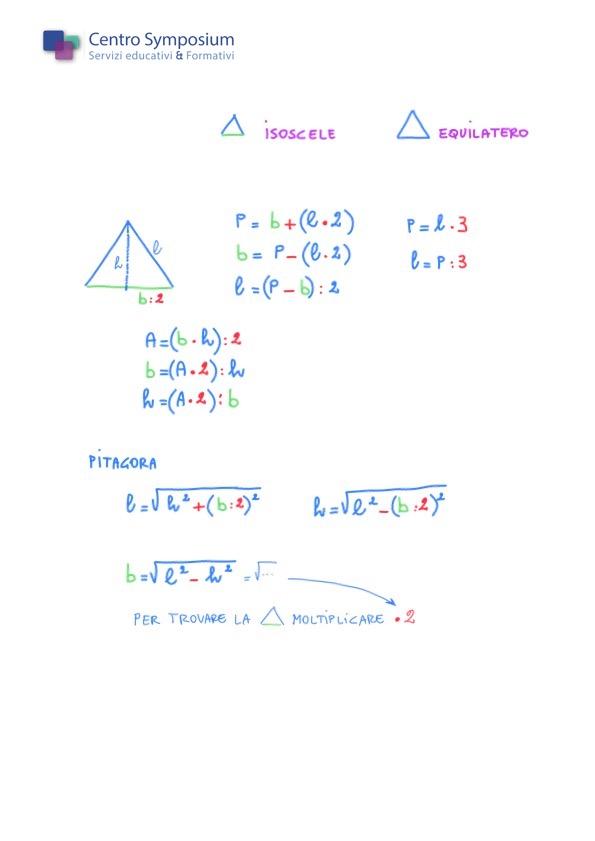 Centro Symposium
Servizi educativi & Formativi
ISOSCELE
EQUILATERO
P = b+(l·2)
b = P-(l·2)
l =(P-b):2
P=l·3
l=P:3
h
l
b:2
A=(b·h):2
b=(A·2):h
h=(A·2):b
PITAGORA
l=√h²+(b:2)²
h=√l²-(b:2)²
b=√l²-h² =√...
PER TROVARE LA △ MOLTIPLICARE ·2